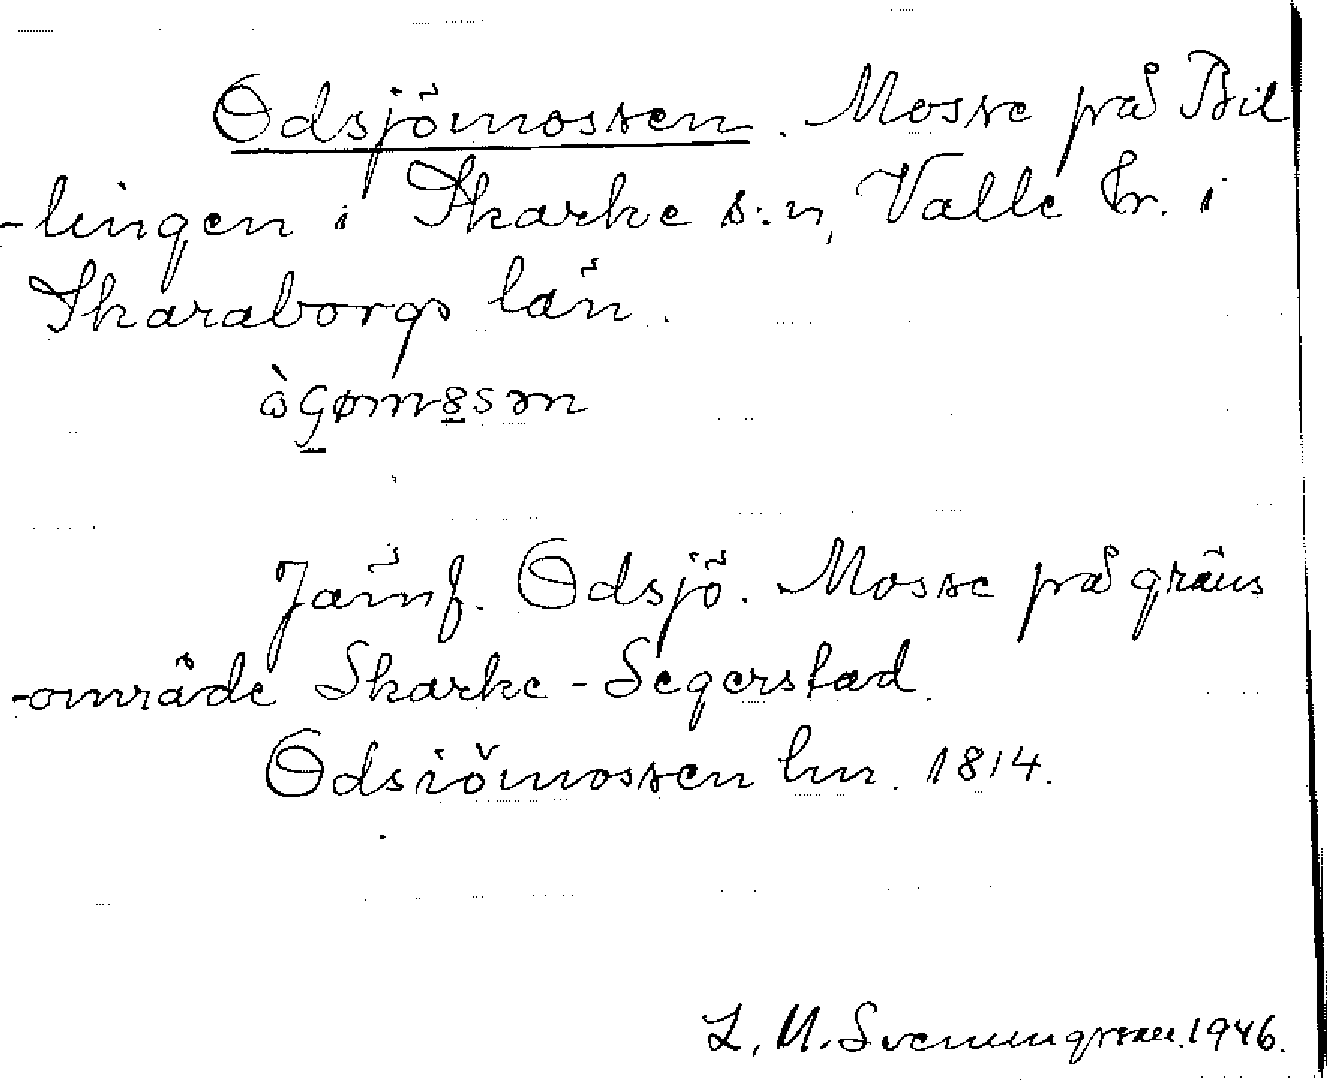 Odsjömossen. Mosse på Bil
-lingen i Skarke s:n, Valle hr. i
Skaraborgs län.
Jämf. Odsjö. Mosse på gräns
-område Skarke-Segerstad.
Odsiömossen hm. 1814.
L. M. Svenungsson. 1946.